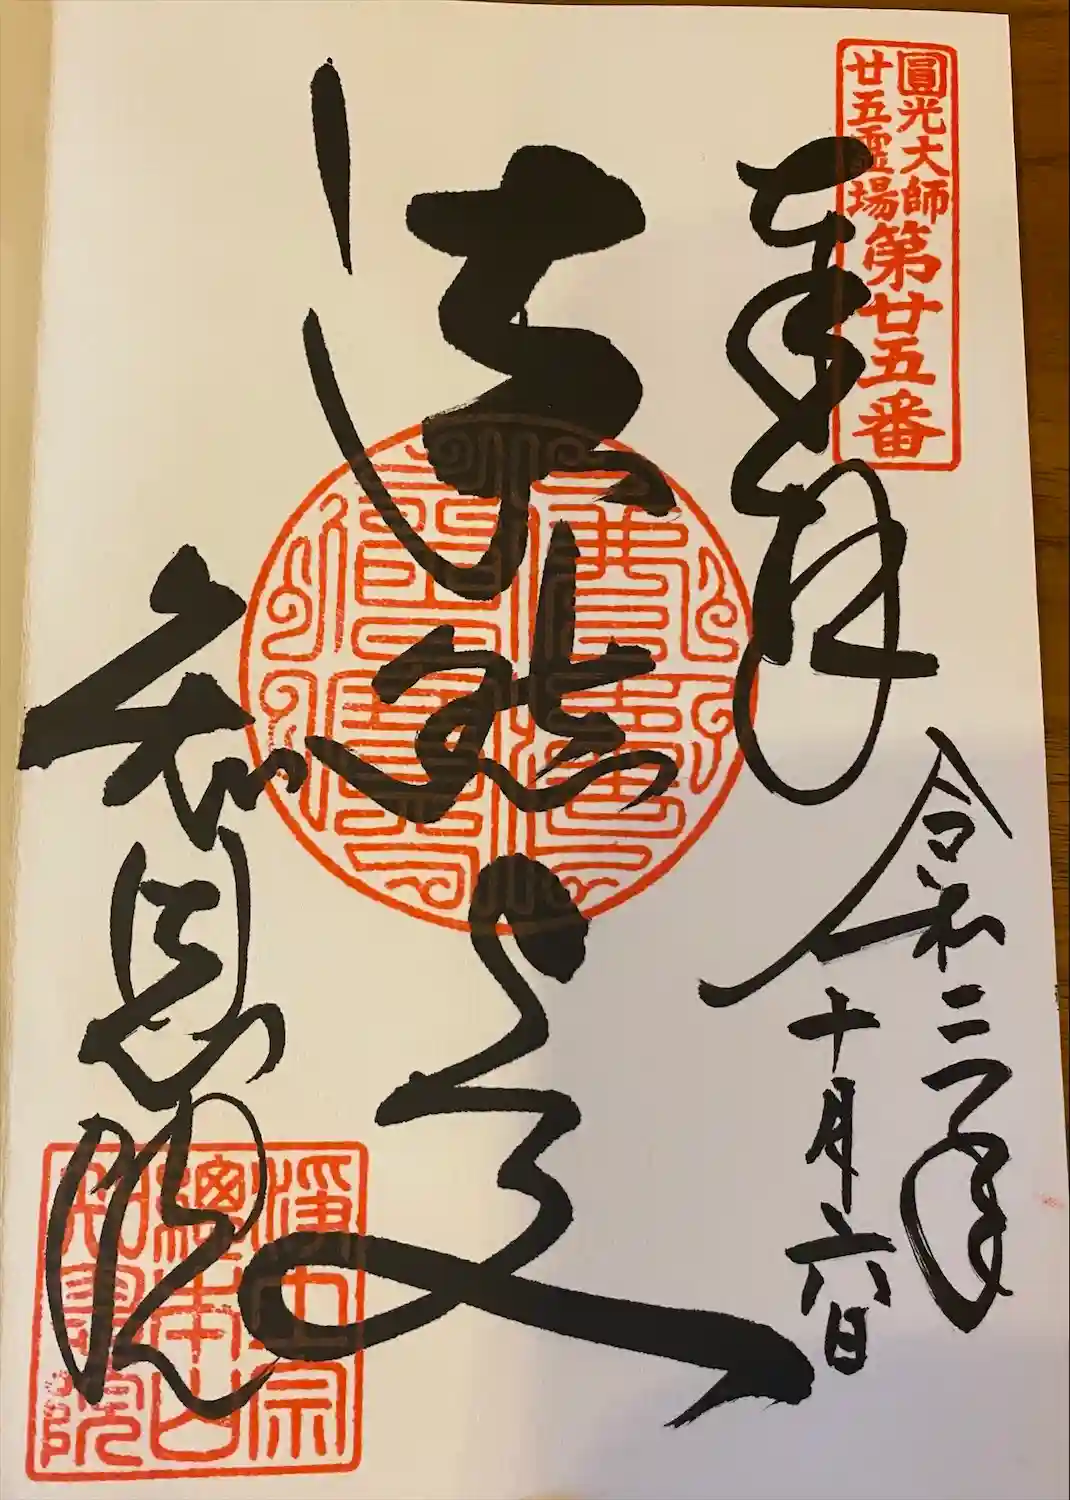 圓光大師
廿五霊場
第廿五番
奉拝
令和二年
十月六日
法然上人
知恩院
淨土宗
總本山
知恩院